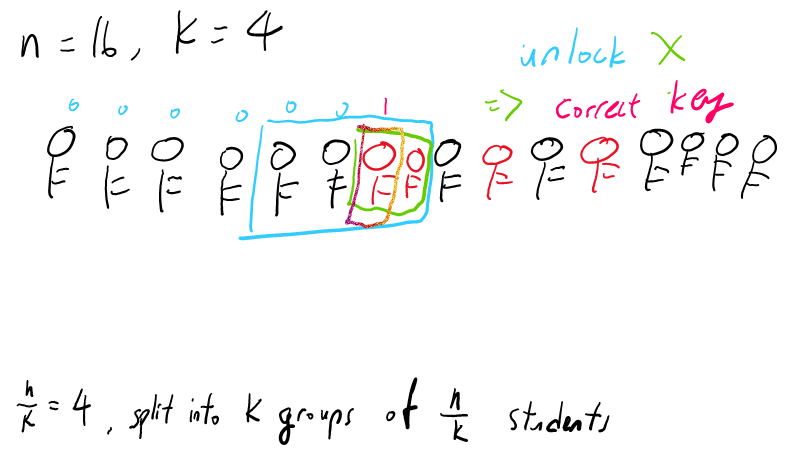 n = 16, k = 4
unlock X
=> correct key
0 0 0 0 0 0 1
n/k = 4, split into k groups of n/k students